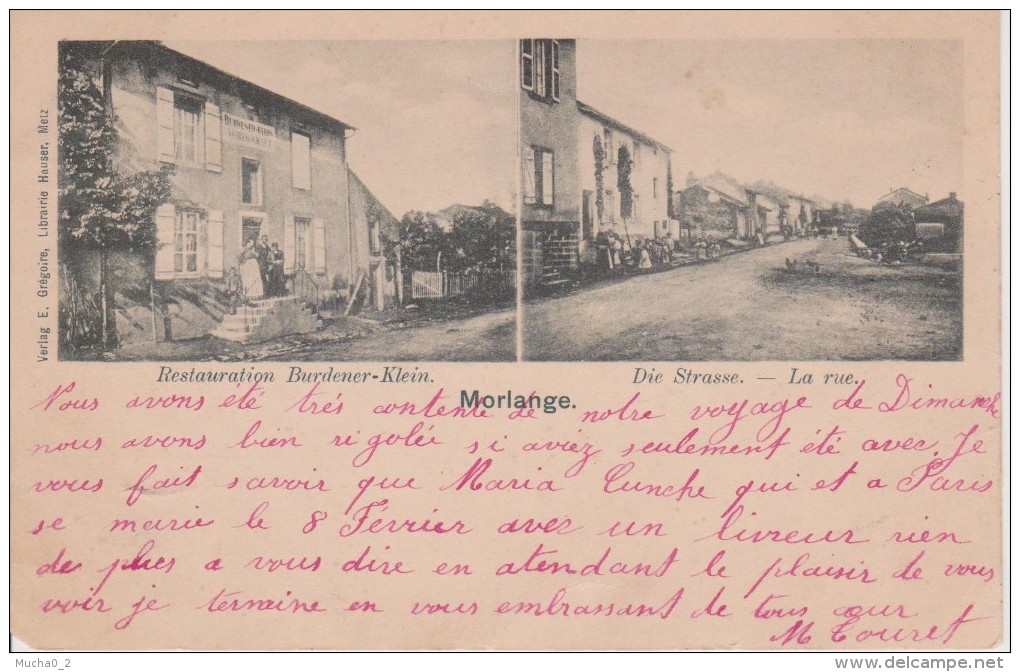 Verlag E. Grégoire, Librairie Hauser, Metz
BURDENER-KLEIN
Restauration Burdener-Klein.
Die Strasse. — La rue.
Morlange.
Nous avons été trés contente de notre voyage de Dimanche
nous avons bien rigolée si aviez seulement été avec. Je
vous fait savoir que Maria Cunche qui et a Paris
se marie le 8 Février avec un livreur rien
de plus a vous dire en atendant le plaisir de vous
voir je termine en vous embrassant de tous cœur
M Couret
Mucha0_2
delcampe.net